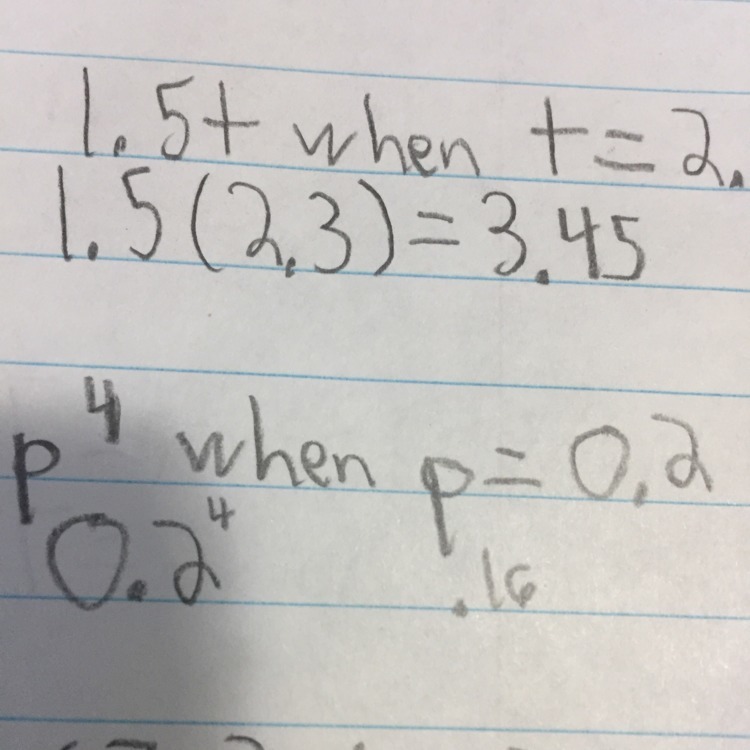 1.5t when t=2.
1.5(2.3)=3.45
p⁴ when p=0.2
0.2⁴ .16